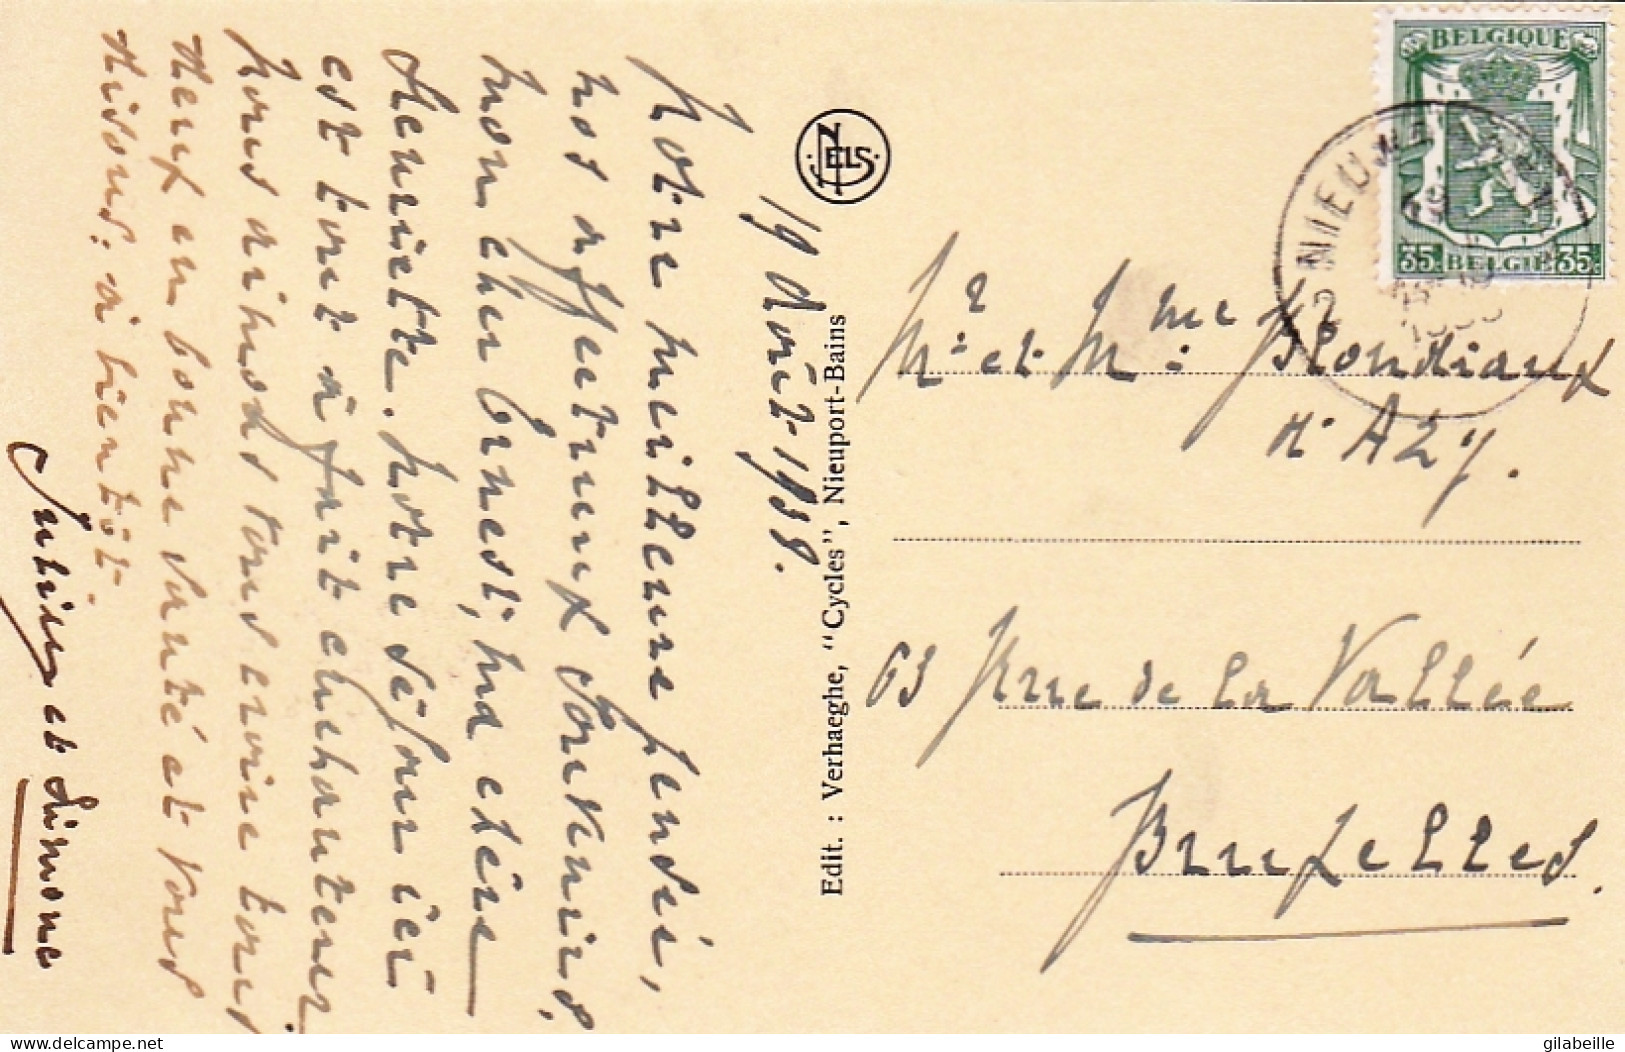 19 Août 1938.
Notre meilleure pensée,
nos affectueux souvenirs,
mon cher Ernest, ma chère
Henriette. Notre séjour ici
est tout à fait enchanteur
nous aimons vous savoir tous
deux en bonne santé et vous
disons: à bientôt.
et Simone
NELS
Edit. : Verhaeghe, "Cycles", Nieuport-Bains
BELGIQUE
35c BELGIE 35c
Mr. et Mme: Blondiaux
d'Azy.
63 Rue de la Vallée
Bruxelles.
delcampe.net
gilabeille